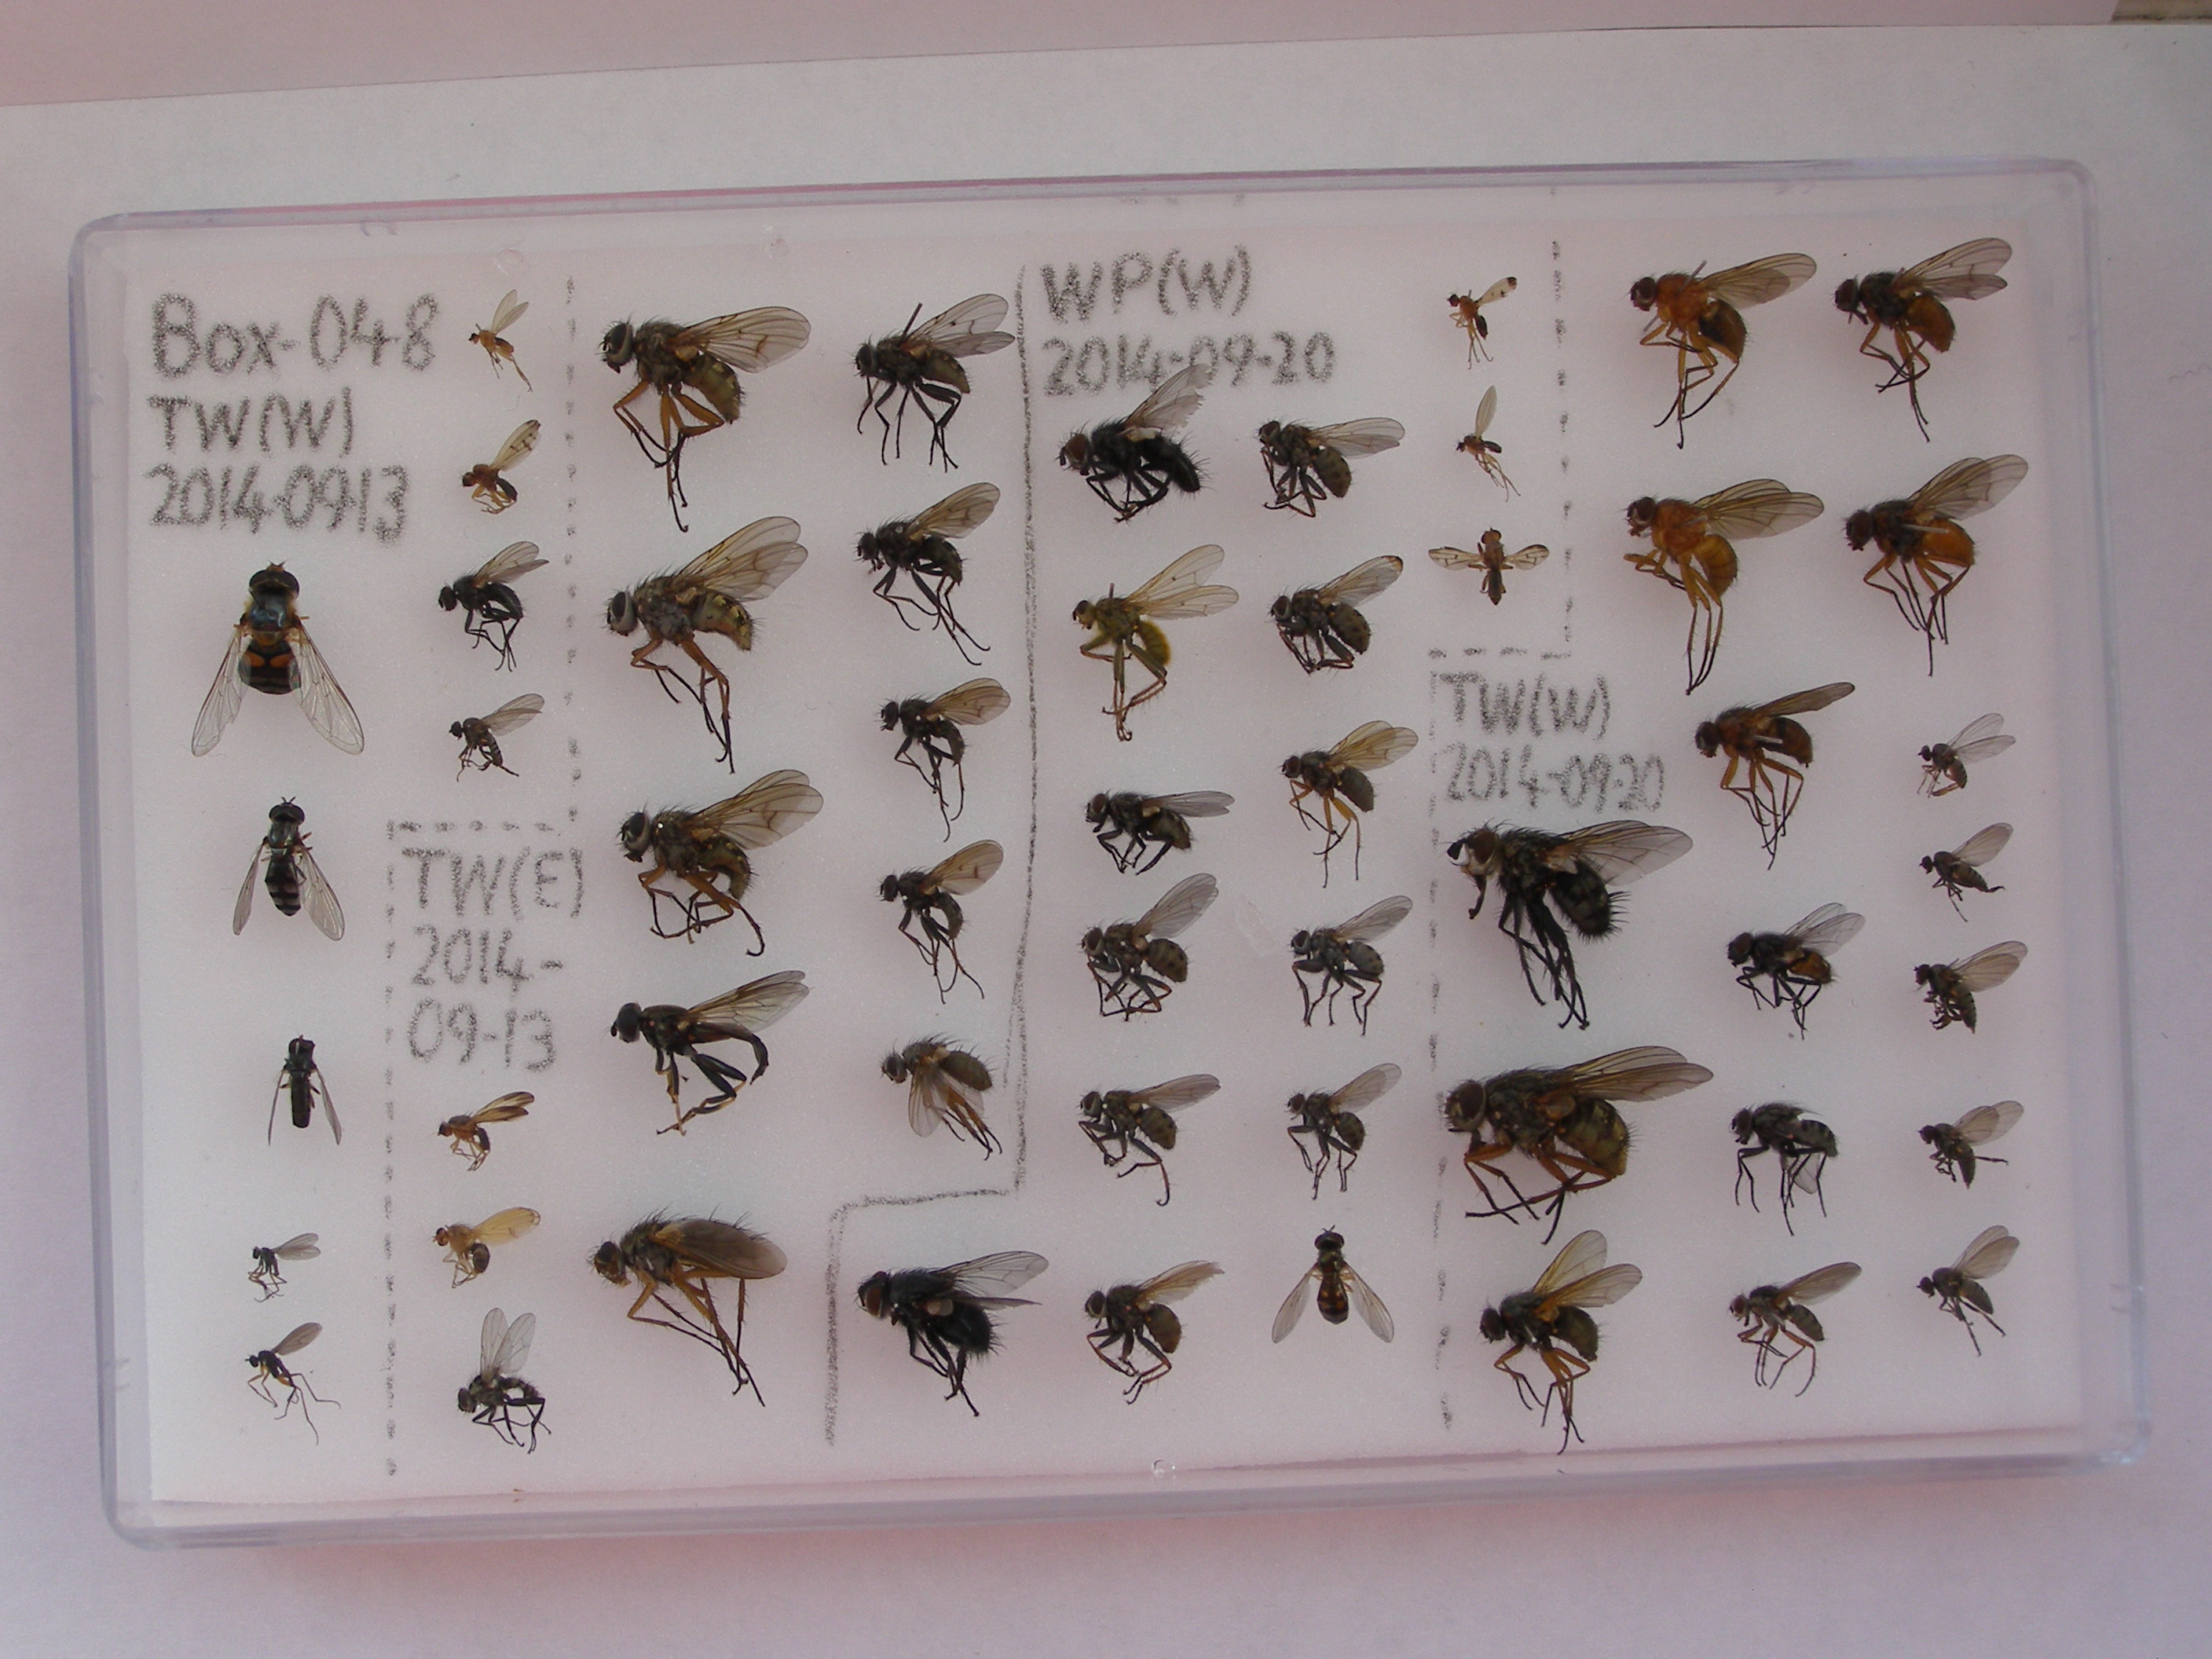 Box-048
TW(W)
2014-0913
TW(E)
2014-
09-13
WP(W)
2014-09-20
TW(W)
2014-09-20